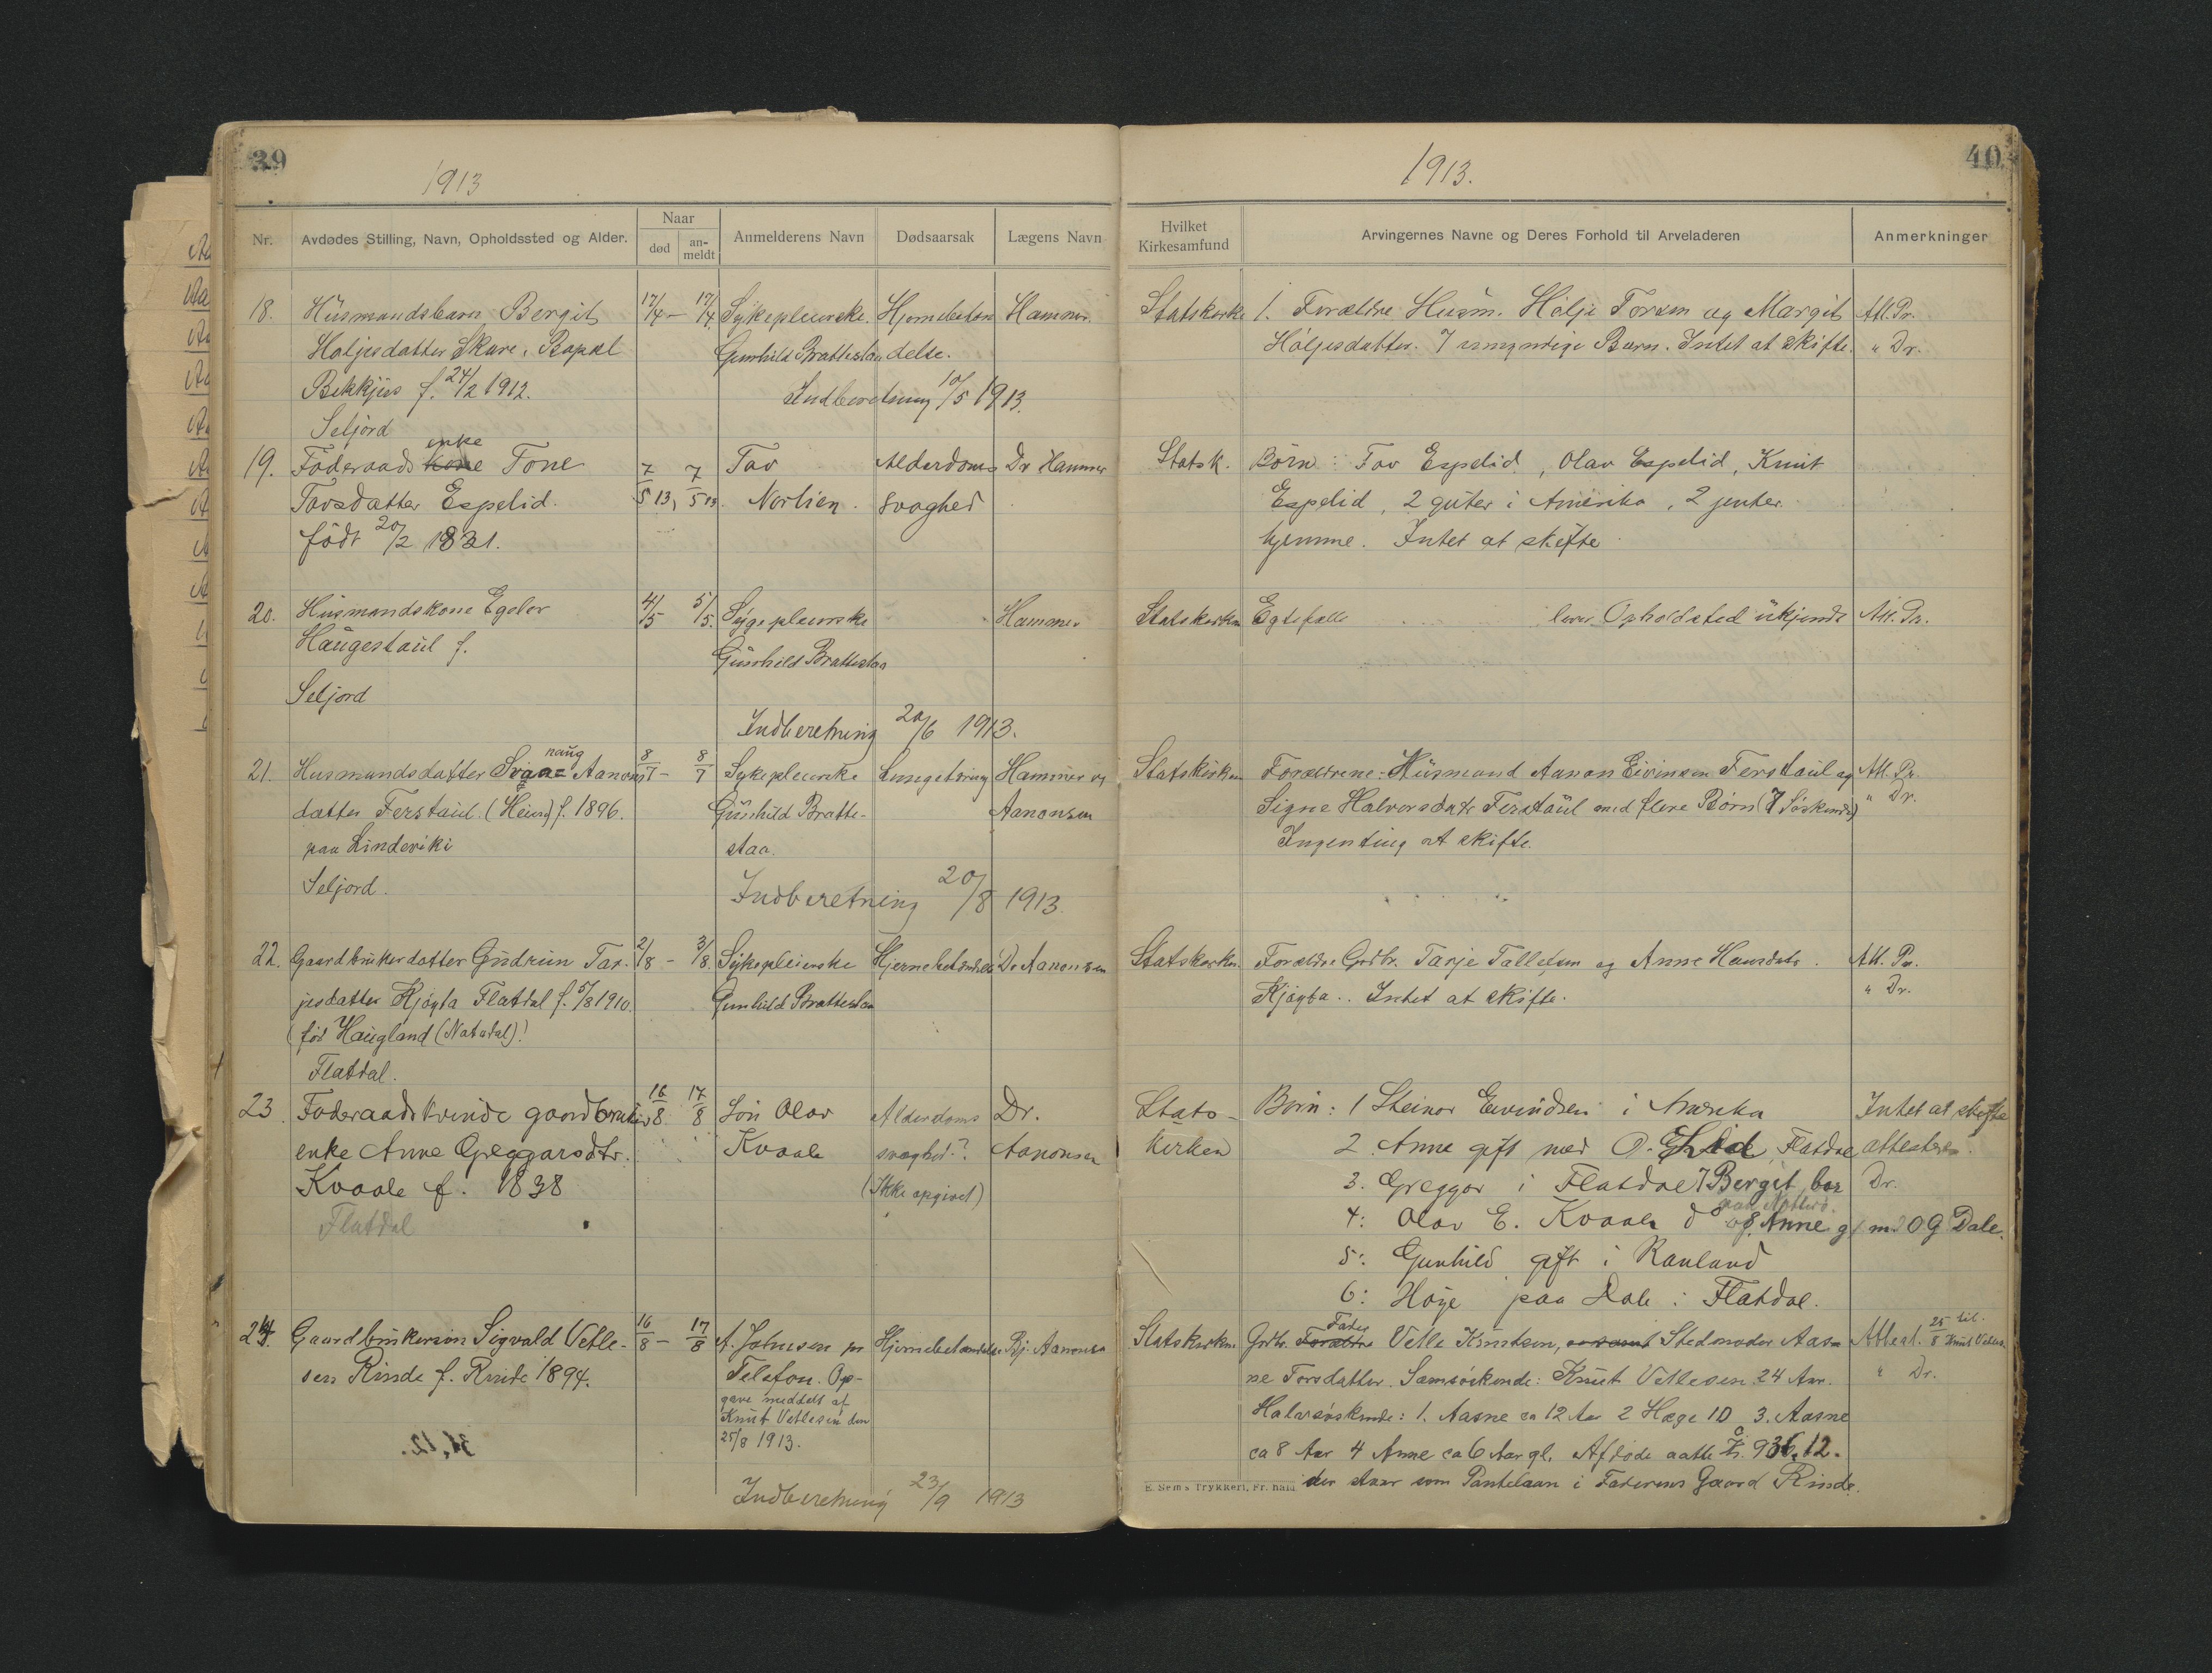 39
1913
Nr.
Avdødes Stilling, Navn, Opholdssted og Alder.
Naar
død
an-
meldt
Anmelderens Navn
Dødsaarsak
Lægens Navn
18. Husmandsbarn Bergit 17/4 – 17/4 Sykepleierske Hjernebetæn Hammer.
Haljesdatter Skare, Gunhild Brattestaa delse.
f. 24/2 1912. Indberetning 10/5 1913.
Seljord
enke
19. Föderaads kone Tone 7/5 13, 7/5 13. Tav Alderdoms Dr Hammer
Tovsdatter Espelid. Norlien. svaghed
född 20/2 1831.
20. Husmandskone Egeler 4/5 5/5. Sygepleierske Hammer
Haugestaul f. Gunhild Brattestaa
Seljord
Indberetning 20/6 1913.
naug
21. Husmandsdatter Aanons 8/7 – 8/7 Sykepleierske Lungetæring Hammer og
datter Ferstaul. (Heiund) f. 1896. Gunhild Bratte- Aanonsen
paa Linderiki staa.
Seljord. Indberetning 20/8 1913.
22. Gaardbrukerdatter Gudrun Tar- 2/8 – 3/8. Sykepleierske Hjernebetændelse Dr Aanonsen
jesdatter Kjøyta Flatdal f. 5/8 1910. Gunhild Brattestaa
(för Haugland (Natadal)!
Flatdal.
23. Foderaadskvinde gaardbruker 16/8 17/8 Sön Olav Alderdoms Dr.
enke Anne Greggarsdtr. Kvaale svaghet? Aanonsen
Kvaale f. 1838 (Ikke opgivet)
Flatdal
24. Gaardbrukersön Sigvald Vetle- 16/8 – 17/8 A. Johnsen pr Hjernebetændelse Bj. Aanonsen
sen Rinde f. Rinde 1894. Telefon. Op-
gave meddelt af
Knut Vetlesen den
25/8 1913.
Indberetning 23/9 1913
1913.
40
Hvilket
Kirkesamfund
Arvingernes Navne og Deres Forhold til Arveladeren
Anmerkninger
Statskirke 1. Forældre Husm. Hölje Torsen og Margit Att. Pr.
Höljesdatter. 7 umyndige Barn. Intet at skifte. " Dr.
Statsk. Börn: Tov Espelid, Olav Espelid, Knut
Espelid, 2 guter i Amerika, 2 jenter
hjemme. Intet at skifte
Statskirken Egtefælle lever Opholdsted ukjendt Att. Pr.
Statskirken Forældrene: Husmand Aanon Eivinsen Ferstaul og Att. Pr.
Signe Halvorsdatr Ferstaul med flere Börn (7 Söskende) " Dr.
Ingenting at skifte.
Statskirken. Forældre Grdbr. Tarje Tallefsen og Anne Hansdatr. Att. Pr.
Kjøyta. Intet at skifte. " Dr.
Stats- Börn: 1 Steinar Eivindsen i Amerika Intet at skifte
kirken 2 Anne gift med O. G. Lid, Flatdal attesteres.
3. Greggar i Flatdal 7 Bergit bor Dr.
paa Nötterö.
4: Olav E. Kvaale 8. Anne g. m. O G Dale.
5: Gunhild gift i Rauland
6: Høye paa Dale i Flatdal.
Fader
Statskirken Grdbr. Forældre Vetle Knutsen, Stedmoder Aas- Attest. 25/8 til Knut Vetlesen
ne Torsdatter. Samsöskende: Knut Vetlesen 24 Aar. " Dr.
Halvsöskende: 1. Aasne ca 12 Aar 2 Hæge 10 3. Aasne
ca 8 Aar 4 Anne ca 6 Aar gl. Afdöde aatte ca Kr. 936.12.
der staar som Pantelaan i Faderens Gaard Rinde.
E. Sems Trykkeri, Fr.hald